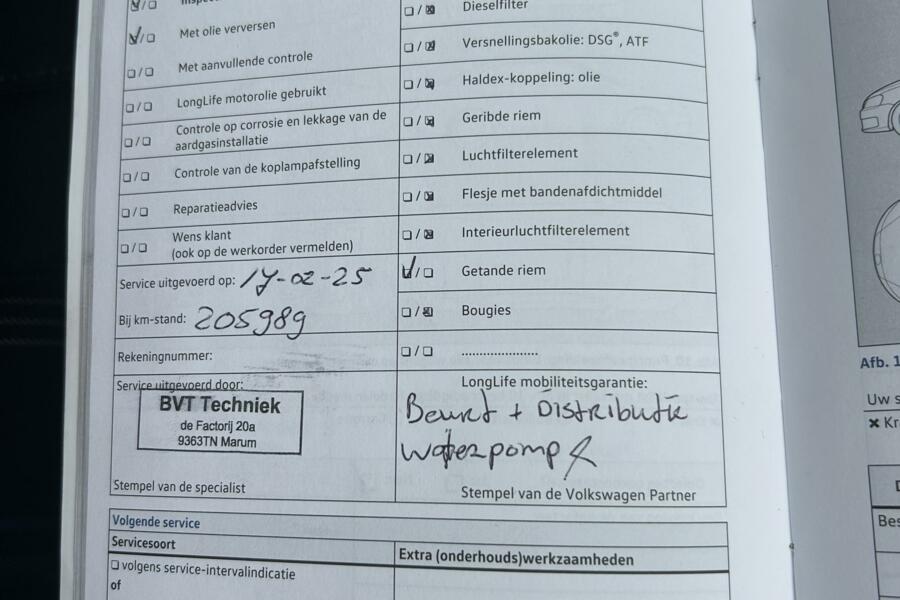 Met olie verversen
Met aanvullende controle
LongLife motorolie gebruikt
Controle op corrosie en lekkage van de
aardgasinstallatie
Controle van de koplampafstelling
Reparatieadvies
Wens klant
(ook op de werkorder vermelden)
Service uitgevoerd op: 17-02-25
Bij km-stand: 205989
Rekeningnummer:
Service uitgevoerd door:
BVT Techniek
de Factorij 20a
9363TN Marum
Stempel van de specialist
Dieselfilter
Versnellingsbakolie: DSG®, ATF
Haldex-koppeling: olie
Geribde riem
Luchtfilterelement
Flesje met bandenafdichtmiddel
Interieurluchtfilterelement
Getande riem
Bougies
......................
LongLife mobiliteitsgarantie:
Beurt + Distributie
waterpomp
Stempel van de Volkswagen Partner
Volgende service
Servicesoort
Extra (onderhouds)werkzaamheden
volgens service-intervalindicatie
of
Afb. 1
Uw s